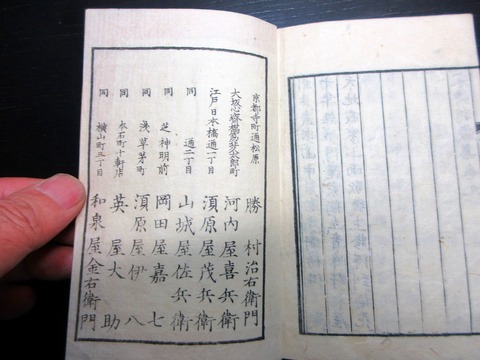 京都寺町通松原 勝村治右衛門
大坂心斎橋筋北久太郎町 河内屋喜兵衛
江戸日本橋通一丁目 須原屋茂兵衛
同 通二丁目 山城屋佐兵衛
同 芝神明前 岡田屋嘉七
同 浅草茅町 須原屋伊八
同 本石町十軒店 英屋大助
同 横山町三丁目 和泉屋金右衛門